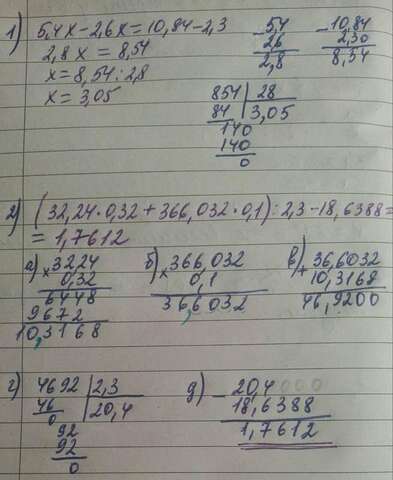 1) 5,4x - 2,6x = 10,84 - 2,3
2,8x = 8,54
x = 8,54 : 2,8
x = 3,05
- 5,4
2,6
2,8
- 10,84
2,30
8,54
854 | 28
84 | 3,05
140
140
0
2) (32,24 · 0,32 + 366,032 · 0,1) : 2,3 - 18,6388 =
= 1,7612
а) x 32,24
0,32
6448
9672
10,3168
б) x 366,032
0,1
36,6032
в) + 36,6032
10,3168
46,9200
г) 4692 | 2,3
46 | 20,4
0
92
92
0
д) - 20,4000
18,6388
1,7612